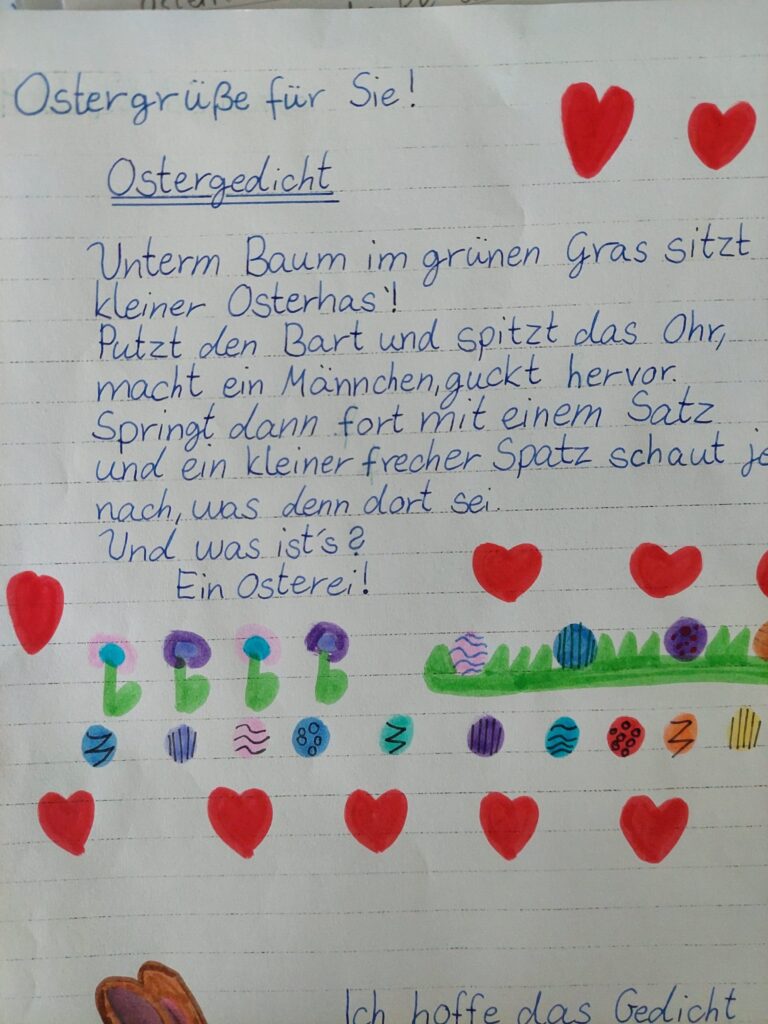 Ostergrüße für Sie!
Ostergedicht
Unterm Baum im grünen Gras sitzt
kleiner Osterhas'!
Putzt den Bart und spitzt das Ohr,
macht ein Männchen, guckt hervor.
Springt dann fort mit einem Satz
und ein kleiner frecher Spatz schaut
nach, was denn dort sei.
Und was ist's?
Ein Osterei!
Ich hoffe das Gedicht